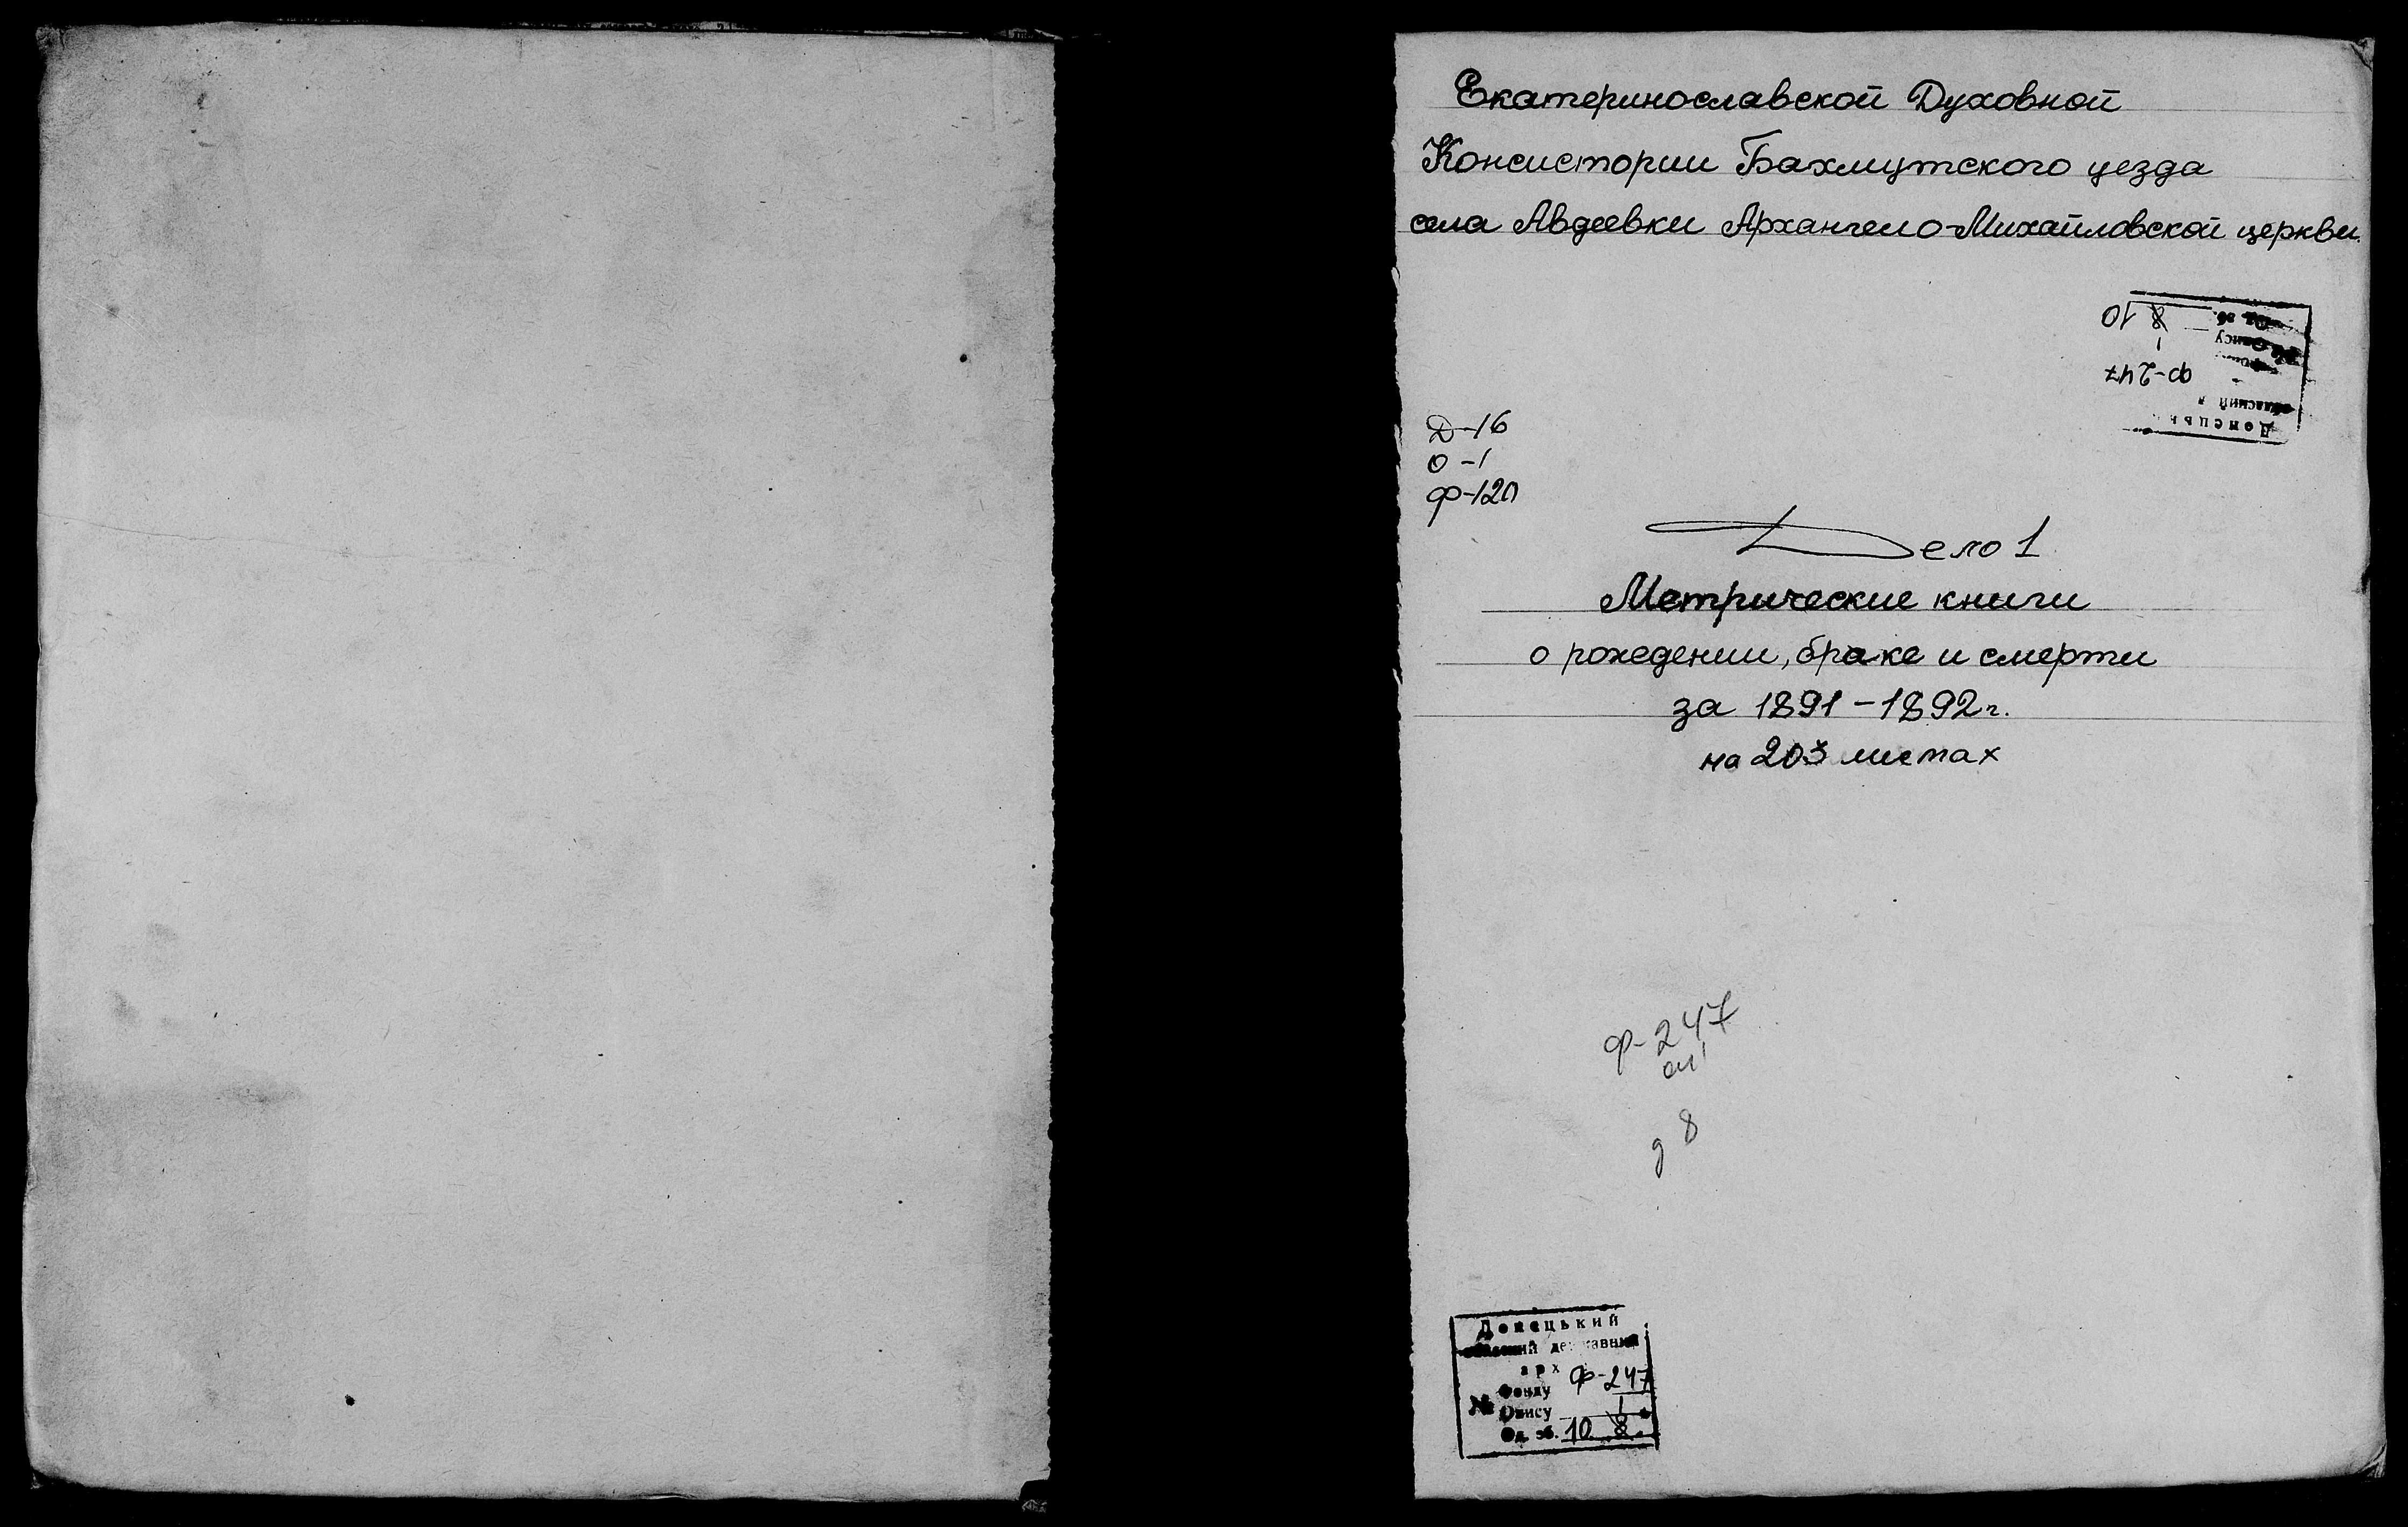 Екатеринославской Духовной
Консистории Бахмутского уезда
села Авдеевки Архангело-Михайловской церкви.
Д-16
О-1
Ф-120
Дело 1
Метрические книги
о рождении, браке и смерти
за 1891-1892 г.
на 203 листах
Ф-247
оп 1
д 8
Донецький
обласний державний
арх
Фонду Ф-247
№ Опису 1
Од. зб. 10 8
Донецьк
обласний
Ф-247
Опису 1
Од. зб. 8 10